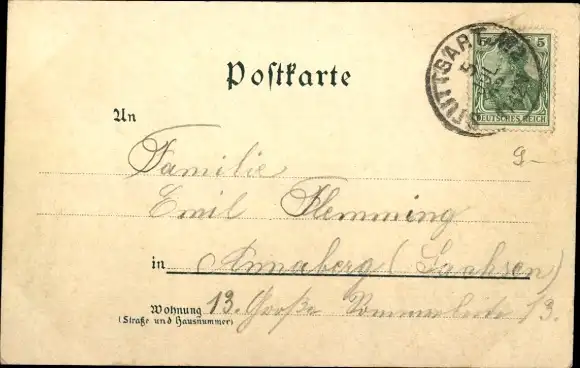 STUTTGART
5 5
DEUTSCHES REICH
Postkarte
An
9-
Familie
Emil Flemming
in Annaberg (Sachsen)
Wohnung 13. Große Sommerleite 13.
(Straße und Hausnummer)